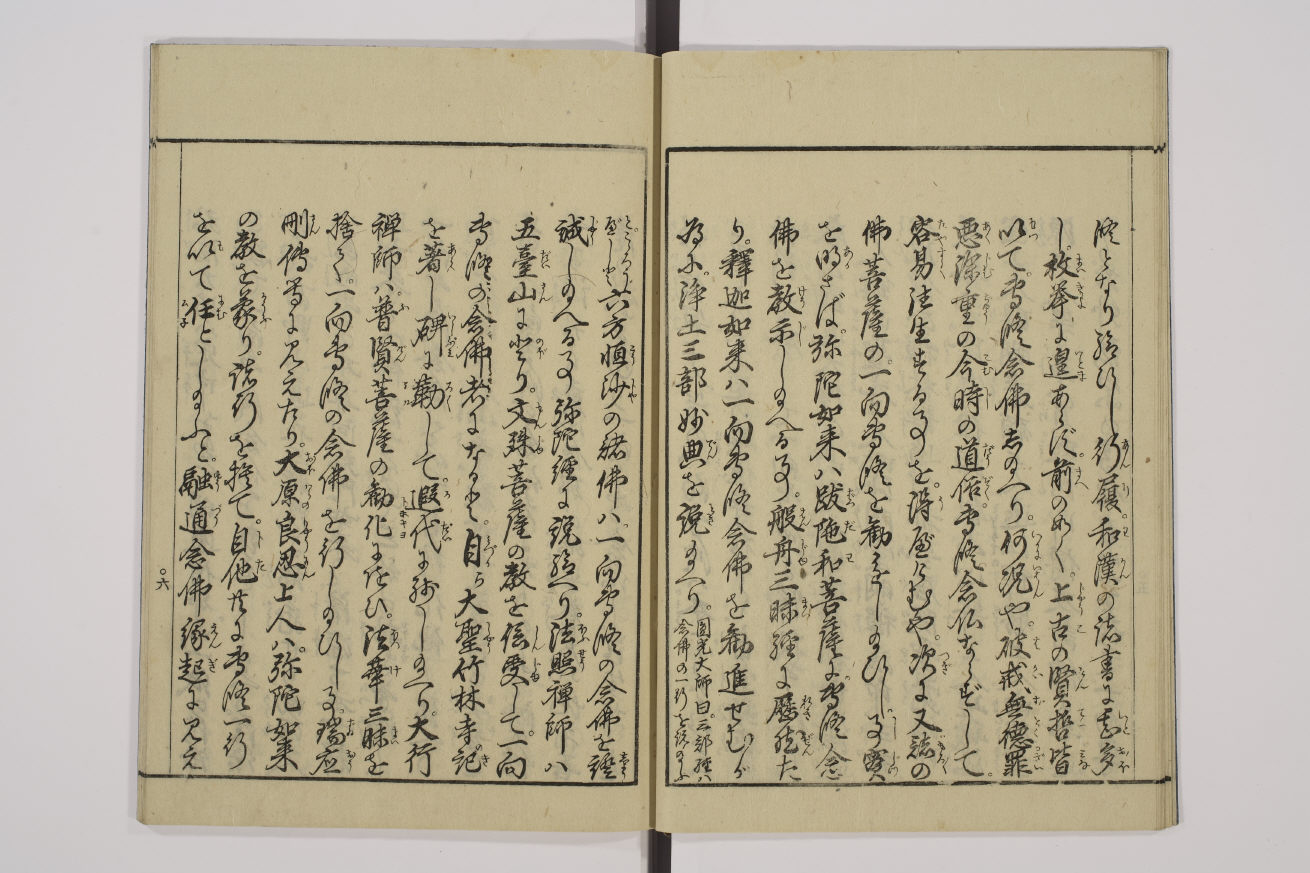 修となり給ひし行履和漢の諸書に甚多
し枚挙に遑あらず前のめく上古の賢哲皆
以て専修念佛志のへり何況や破戒無徳罪
悪深重の今時の道俗専修念仏ならずして
容易往生する事を得屋けむや次に又諸の
佛菩薩の一向専修を勧まし給ひし事實
を明さば弥陀如来ハ跋陁和菩薩に専修念
佛を教示し給へる事般舟三昧経に歴然た
り釋迦如来ハ一向専修念佛を勧進せむが
為に浄土三部妙典を説給へり
圓光大師曰三部経ハ
念佛の一行を説給ふ
ところ也六方恒沙の諸佛ハ一向専修の念佛を證
誠し給へる事弥陀經に説給へり法照禅師ハ
五臺山に登り文殊菩薩の教を信受して一向
専修の念佛者になると自ら大聖竹林寺記
を著し碑に勒して遐代に残し給へり大行
禅師ハ普賢菩薩の勧化に遇ひ法華三昧を
捨て一向専修の念佛を行し給ひし事瑞応
刪傳等に見えたり大原良忍上人ハ弥陀如来
の教を蒙り諸行を捨て自他共に専修一行
を以て任とし給ふと融通念佛縁起に見え
六